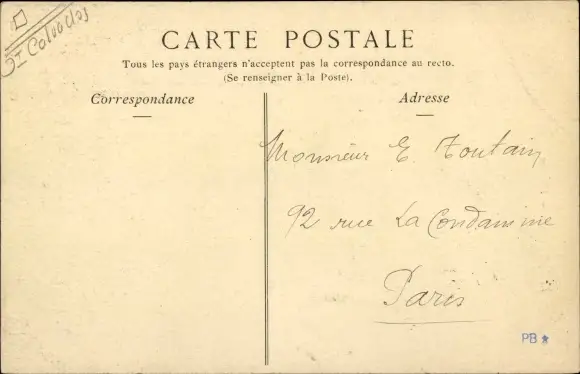 CARTE POSTALE
Tous les pays étrangers n'acceptent pas la correspondance au recto.
(Se renseigner à la Poste).
Correspondance
Adresse
Monsieur E. Toutain
92 rue La Condamine
Paris
PB